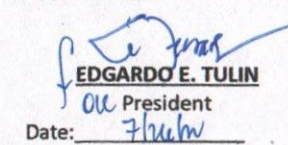 EDGARDO E. TULIN
OIC President
Date: